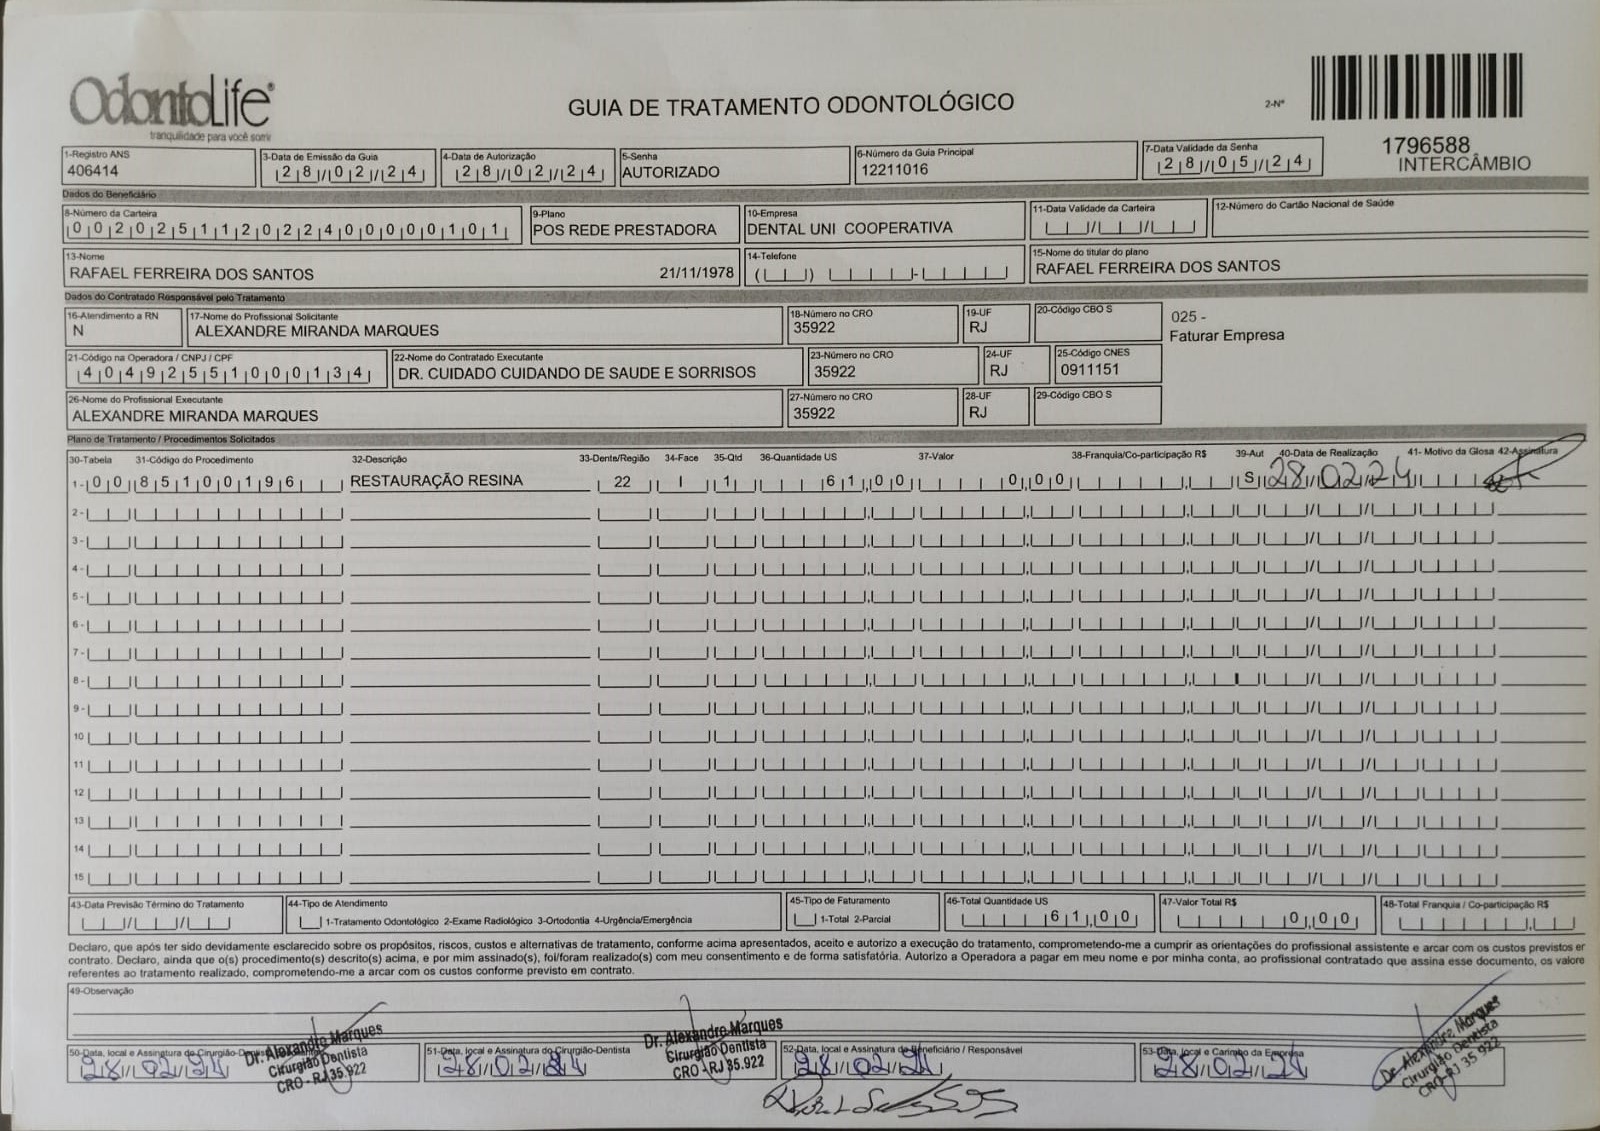 OdontoLife®
tranquilidade para você sorrir
GUIA DE TRATAMENTO ODONTOLÓGICO
2-Nº
1796588
INTERCÂMBIO
1-Registro ANS
406414
3-Data de Emissão da Guia
28/02/24
4-Data de Autorização
28/02/24
5-Senha
AUTORIZADO
6-Número da Guia Principal
12211016
7-Data Validade da Senha
28/05/24
Dados do Beneficiário
8-Número da Carteira
00202511202240000101
9-Plano
POS REDE PRESTADORA
10-Empresa
DENTAL UNI COOPERATIVA
11-Data Validade da Carteira
12-Número do Cartão Nacional de Saúde
13-Nome
RAFAEL FERREIRA DOS SANTOS 21/11/1978
14-Telefone
15-Nome do titular do plano
RAFAEL FERREIRA DOS SANTOS
Dados do Contratado Responsável pelo Tratamento
16-Atendimento a RN
N
17-Nome do Profissional Solicitante
ALEXANDRE MIRANDA MARQUES
18-Número no CRO
35922
19-UF
RJ
20-Código CBO S
025 -
Faturar Empresa
21-Código na Operadora / CNPJ / CPF
40492551000134
22-Nome do Contratado Executante
DR. CUIDADO CUIDANDO DE SAUDE E SORRISOS
23-Número no CRO
35922
24-UF
RJ
25-Código CNES
0911151
26-Nome do Profissional Executante
ALEXANDRE MIRANDA MARQUES
27-Número no CRO
35922
28-UF
RJ
29-Código CBO S
Plano de Tratamento / Procedimentos Solicitados
30-Tabela 31-Código do Procedimento 32-Descrição 33-Dente/Região 34-Face 35-Qtd 36-Quantidade US 37-Valor 38-Franquia/Co-participação R$ 39-Aut 40-Data de Realização 41- Motivo da Glosa 42-Assinatura
1- 00 85100196 RESTAURAÇÃO RESINA 22 I 1 61,00 0,00 S 28/02/24
2-
3-
4-
5-
6-
7-
8-
9-
10
11
12
13
14
15
43-Data Previsão Término do Tratamento
44-Tipo de Atendimento
1-Tratamento Odontológico 2-Exame Radiológico 3-Ortodontia 4-Urgência/Emergência
45-Tipo de Faturamento
1-Total 2-Parcial
46-Total Quantidade US
61,00
47-Valor Total R$
0,00
48-Total Franquia / Co-participação R$
Declaro, que após ter sido devidamente esclarecido sobre os propósitos, riscos, custos e alternativas de tratamento, conforme acima apresentados, aceito e autorizo a execução do tratamento, comprometendo-me a cumprir as orientações do profissional assistente e arcar com os custos previstos er
contrato. Declaro, ainda que o(s) procedimento(s) descrito(s) acima, e por mim assinado(s), foi/foram realizado(s) com meu consentimento e de forma satisfatória. Autorizo a Operadora a pagar em meu nome e por minha conta, ao profissional contratado que assina esse documento, os valore
referentes ao tratamento realizado, comprometendo-me a arcar com os custos conforme previsto em contrato.
49-Observação
50-Data, local e Assinatura do Cirurgião-Dentista
28/02/24
Dr. Alexandre Marques
Cirurgião Dentista
CRO - RJ 35.922
51-Data, local e Assinatura do Cirurgião-Dentista
28/02/24
Dr. Alexandre Marques
Cirurgião Dentista
CRO - RJ 35.922
52-Data, local e Assinatura do Beneficiário / Responsável
28/02/24
53-Data, local e Carimbo da Empresa
28/02/24
Dr. Alexandre Marques
Cirurgião Dentista
CRO-RJ 35.922